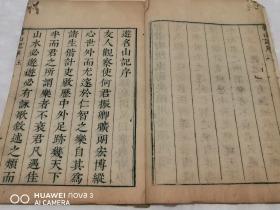 遊名山記序
友人觀察使何君振卿曠朗宏博縱
心世外而尤邃於仁智之樂自其爲
諸生偕計吏敭歷中外足跡幾天下
半而君之所謂樂者不衰君凡遇佳
山水必遊遊必有詠歌敘述之類而
HUAWEI nova 3
AI CAMERA